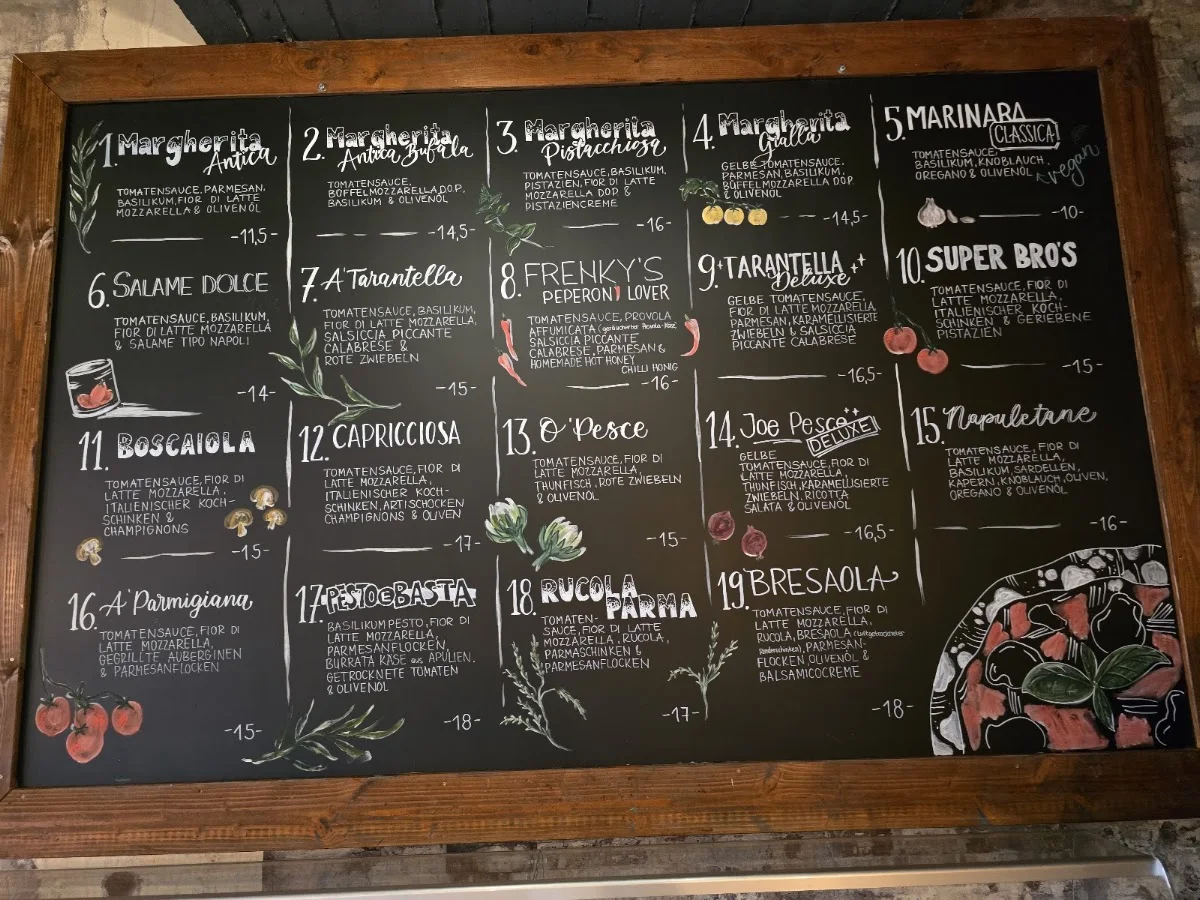 1. Margherita
Antica
TOMATENSAUCE, PARMESAN,
BASILIKUM, FIOR DI LATTE
MOZZARELLA & OLIVENÖL
-11,5-
2. Margherita
Antica Bufala
TOMATENSAUCE,
BÜFFELMOZZARELLA D.O.P.
BASILIKUM & OLIVENÖL
-14,5-
3. Margherita
Pistacchiosa
TOMATENSAUCE, BASILIKUM,
PISTAZIEN, FIOR DI LATTE
MOZZARELLA DOP &
PISTAZIENCREME
-16-
4. Margherita
Gialla
GELBE TOMATENSAUCE,
PARMESAN, BASILIKUM,
BÜFFELMOZZARELLA DOP
& OLIVENÖL
-14,5-
5. MARINARA
CLASSICA
TOMATENSAUCE,
BASILIKUM, KNOBLAUCH,
OREGANO & OLIVENÖL
vegan
-10-
6. SALAME DOLCE
TOMATENSAUCE, BASILIKUM,
FIOR DI LATTE MOZZARELLA
& SALAME TIPO NAPOLI
-14-
7. A'Tarantella
TOMATENSAUCE, BASILIKUM,
FIOR DI LATTE MOZZARELLA,
SALSICCIA PICCANTE
CALABRESE &
ROTE ZWIEBELN
-15-
8. FRENKY'S
PEPERONI LOVER
TOMATENSAUCE, PROVOLA
AFFUMICATA (geräucherter Provola-Käse)
SALSICCIA PICCANTE
CALABRESE, PARMESAN &
HOMEMADE HOT HONEY
CHILLI HONIG
-16-
9. TARANTELLA
Deluxe
GELBE TOMATENSAUCE,
FIOR DI LATTE MOZZARELLA
PARMESAN, KARAMELLISIERTE
ZWIEBELN & SALSICCIA
PICCANTE CALABRESE
-16,5-
10. SUPER BRO'S
TOMATENSAUCE, FIOR DI
LATTE MOZZARELLA,
ITALIENISCHER KOCH-
SCHINKEN & GERIEBENE
PISTAZIEN
-15-
11. BOSCAIOLA
TOMATENSAUCE, FIOR DI
LATTE MOZZARELLA,
ITALIENISCHER KOCH-
SCHINKEN &
CHAMPIGNONS
-15-
12. CAPRICCIOSA
TOMATENSAUCE, FIOR DI
LATTE MOZZARELLA,
ITALIENISCHER KOCH-
SCHINKEN, ARTISCHOCKEN
CHAMPIGNONS & OLIVEN
-17-
13. O'Pesce
TOMATENSAUCE, FIOR DI
LATTE MOZZARELLA,
THUNFISCH, ROTE ZWIEBELN
& OLIVENÖL
-15-
14. Joe Pesce
DELUXE!
GELBE
TOMATENSAUCE, FIOR DI
LATTE MOZZARELLA,
THUNFISCH, KARAMELLISIERTE
ZWIEBELN, RICOTTA
SALATA & OLIVENÖL
-16,5-
15. Napuletane
TOMATENSAUCE, FIOR DI
LATTE MOZZARELLA,
BASILIKUM, SARDELLEN,
KAPERN, KNOBLAUCH, OLIVEN,
OREGANO & OLIVENÖL
-16-
16. A'Parmigiana
TOMATENSAUCE, FIOR DI
LATTE MOZZARELLA,
GEGRILLTE AUBERGINEN
& PARMESANFLOCKEN
-15-
17. PESTO E BASTA
BASILIKUM PESTO, FIOR DI
LATTE MOZZARELLA,
PARMESANFLOCKEN,
BURRATA KÄSE aus APULIEN,
GETROCKNETE TOMATEN
& OLIVENÖL
-18-
18. RUCOLA
PARMA
TOMATEN-
SAUCE, FIOR DI LATTE
MOZZARELLA, RUCOLA,
PARMASCHINKEN &
PARMESANFLOCKEN
-17-
19. BRESAOLA
TOMATENSAUCE, FIOR DI
LATTE MOZZARELLA,
RUCOLA, BRESAOLA (luftgetrockneter
Rinderschinken), PARMESAN-
FLOCKEN OLIVENÖL &
BALSAMICOCREME
-18-